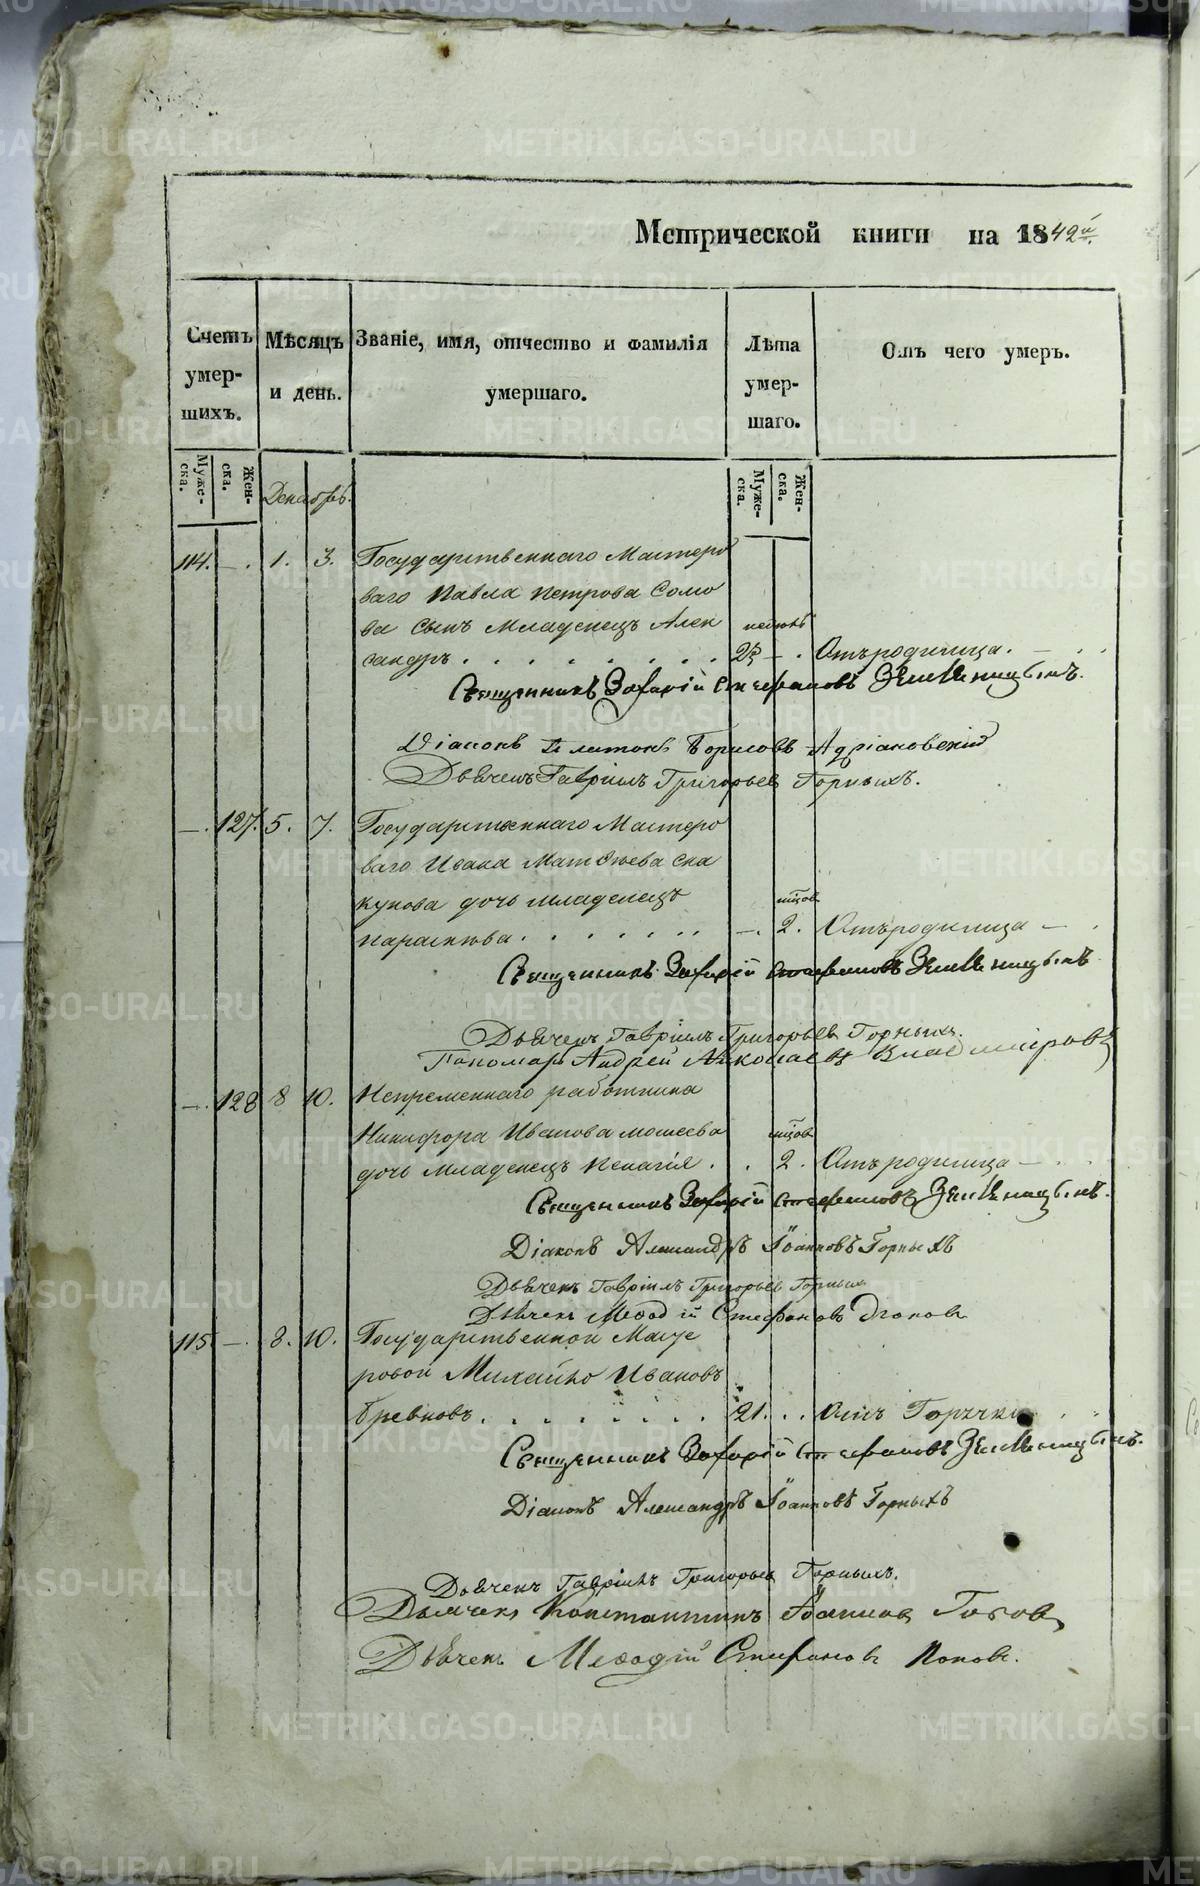 Метрической книги на 1842й.
Счетъ умер-шихъ.
Мѣсяцъ и день.
Званіе, имя, отчество и фамилія умершаго.
Лѣта умер-шаго.
Отъ чего умеръ.
Муже-ска.
Жен-ска.
Декабрь.
Муже-ска.
Жен-ска.
114. — . 1. 3. Государственнаго Мастеро
ваго Павла Петрова Сомо
ва сынъ младенецъ Алек
сандръ . . . . . . . . . — . Отъ родимца. —
Священникъ Захарій Стефановъ Земляницынъ.
Діаконъ Платонъ Борисовъ Адріановскій
Дьячекъ Гавріилъ Григорьев Горныхъ.
— . 127. 5. 7. Государственнаго Мастеро
ваго Ивана Матвѣева Ска
кунова дочь младенецъ
мцов
Параскева . . . . . . . — . 2. Отъ родимца —
Священникъ Захарій Стефановъ Земляницынъ
Дьячекъ Гавріилъ Григорьев Горныхъ.
Пономарь Андрей Николаевъ Владиміровъ
— . 128 8 10. Непременнаго работника
Никифора Иванова Мосеева
мцов
дочь младенецъ Пелагія . . 2. Отъ родимца —
Священникъ Захарій Стефановъ Земляницынъ.
Діаконъ Александръ Іоанновъ Горныхъ
Дьячекъ Гавріилъ Григорьев Горныхъ
Дьячекъ Меѳодій Стефановъ
115. — . 8. 10. Государственной Масте
ровой Михайло Ивановъ
Бревновъ . . . . . . . . 21. . . Отъ Горячки
Священникъ Захарій Стефановъ Земляницынъ.
Діаконъ Александръ Іоанновъ Горныхъ
Дьячекъ Гавріилъ Григорьев Горныхъ.
Дьячекъ Константинъ Іоаннов
Дьячекъ Меѳодій Стефановъ Поповъ.
METRIKI.GASO-URAL.RU